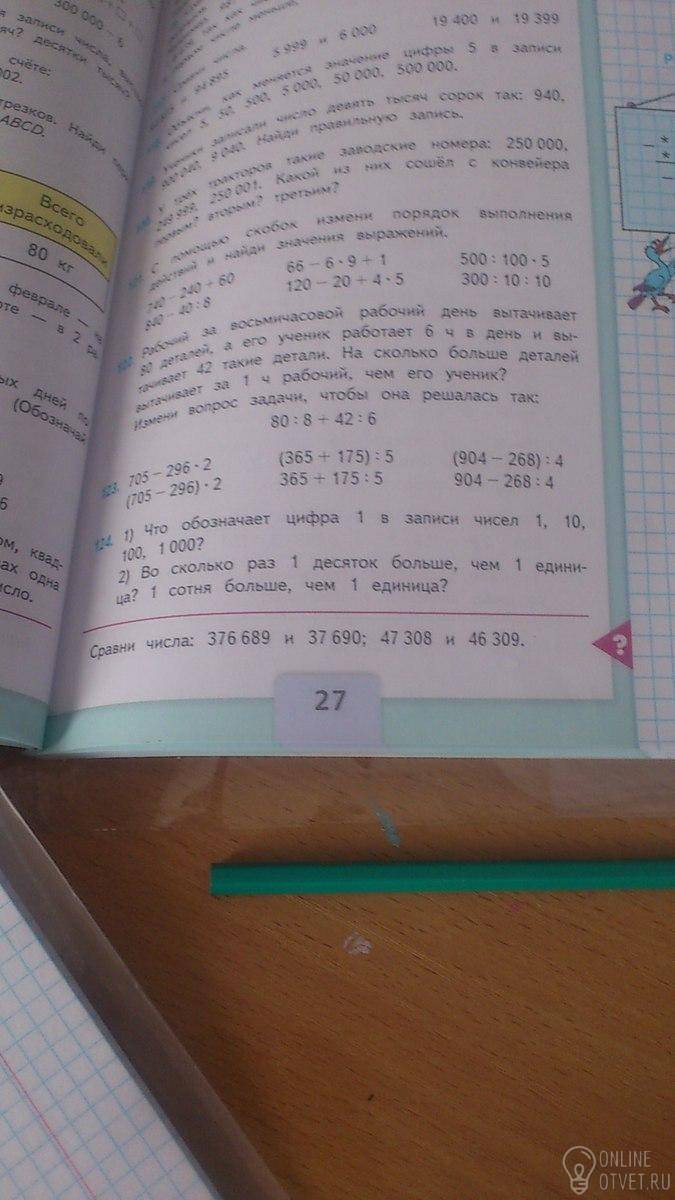 300 000 − 6
записи числа,
яч? десятки тысяч
счёте:
002.
трезков. Найди
ABCD.
Всего
израсходовали
80 кг
феврале —
— в 2 ра
ых дней по
(Обозначай
9
6
ом, квад-
ах одна
исло.
числа.
5 999 и 6 000
19 400 и 19 399
как меняется значение цифры 5 в записи
чисел 5, 50, 500, 5 000, 50 000, 500 000.
Ученики записали число девять тысяч сорок так: 940,
900 040, 9 040. Найди правильную запись.
У трёх тракторов такие заводские номера: 250 000,
249 999, 250 001. Какой из них сошёл с конвейера
первым? вторым? третьим?
С помощью скобок измени порядок выполнения
действий и найди значения выражений.
740 − 240 + 60 66 − 6 · 9 + 1 500 : 100 · 5
840 − 40 : 8 120 − 20 + 4 · 5 300 : 10 : 10
Рабочий за восьмичасовой рабочий день вытачивает
80 деталей, а его ученик работает 6 ч в день и вы-
тачивает 42 такие детали. На сколько больше деталей
вытачивает за 1 ч рабочий, чем его ученик?
Измени вопрос задачи, чтобы она решалась так:
80 : 8 + 42 : 6
123. 705 − 296 · 2 (365 + 175) : 5 (904 − 268) : 4
(705 − 296) · 2 365 + 175 : 5 904 − 268 : 4
124. 1) Что обозначает цифра 1 в записи чисел 1, 10,
100, 1 000?
2) Во сколько раз 1 десяток больше, чем 1 едини-
ца? 1 сотня больше, чем 1 единица?
Сравни числа: 376 689 и 37 690; 47 308 и 46 309.
?
27
ONLINE
OTVET.RU